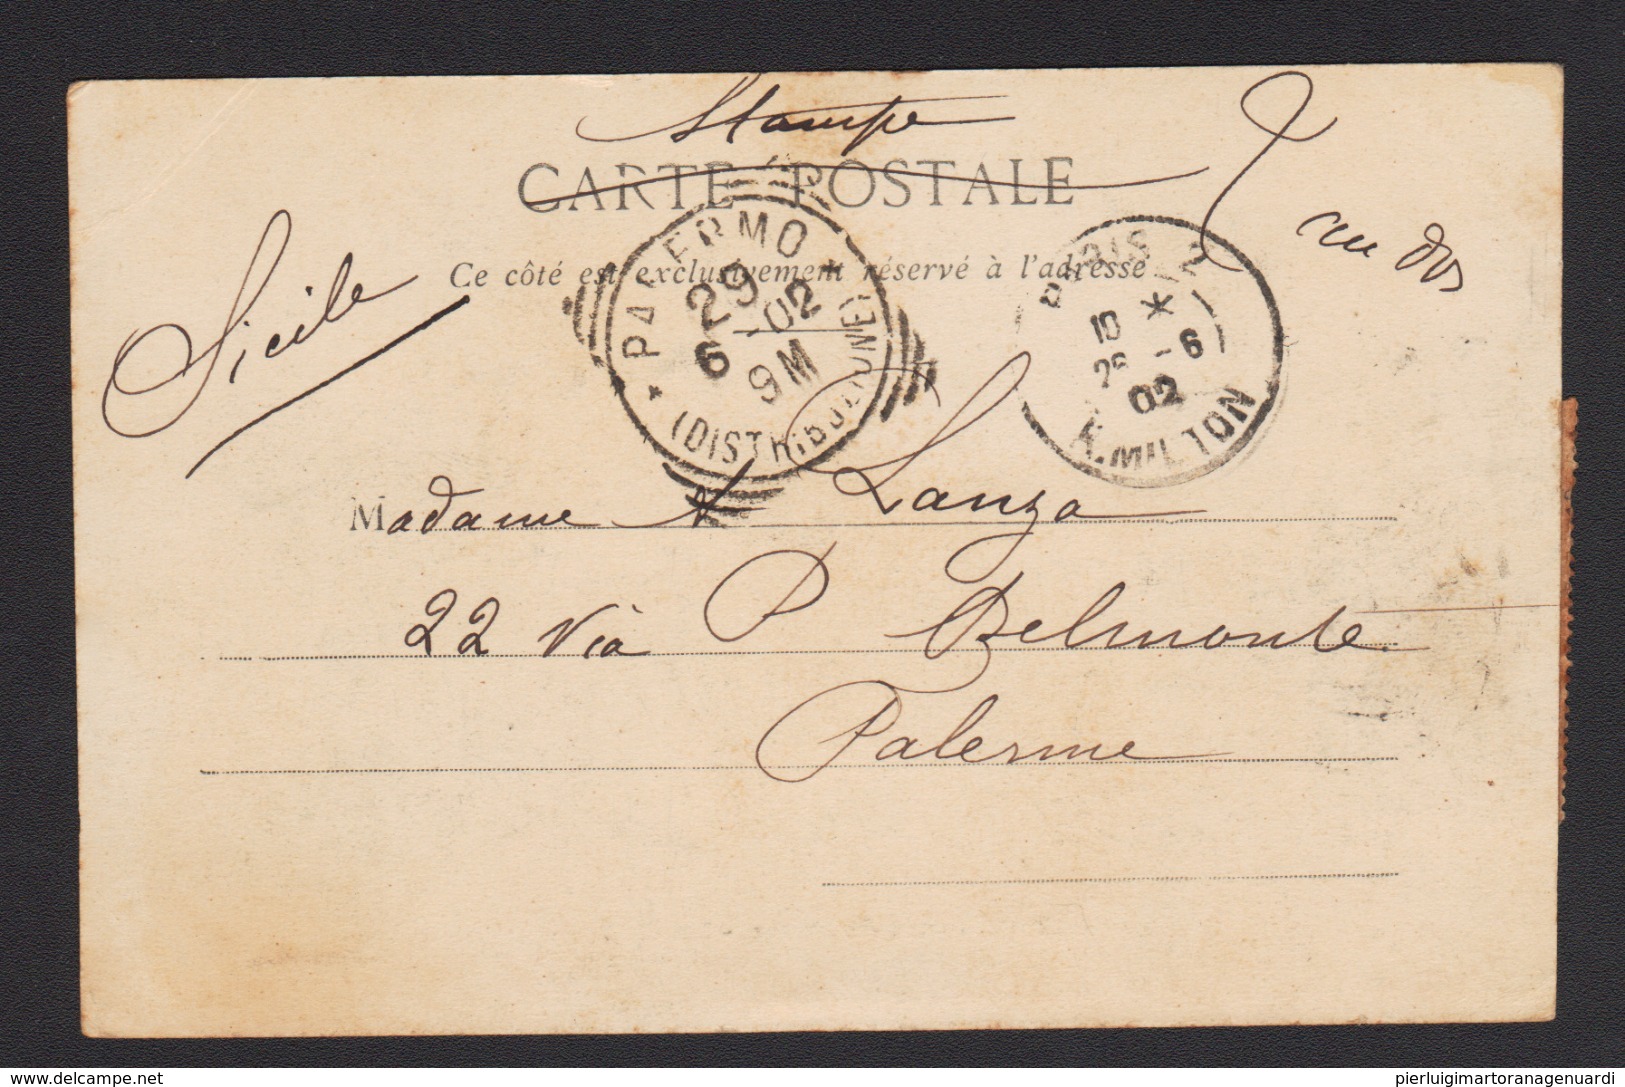 Stampe
CARTE POSTALE
au dos
Ce côté est exclusivement réservé à l'adresse
Sicile
PALERMO
29
6 -02
9M
(DISTRIBUZIONE)
PARIS 12
10 *
-6
02
R. MILTON
Madame Lanza
22 Via P Belmonte
Palerme
www.delcampe.net
pierluigimartoranagenuardi